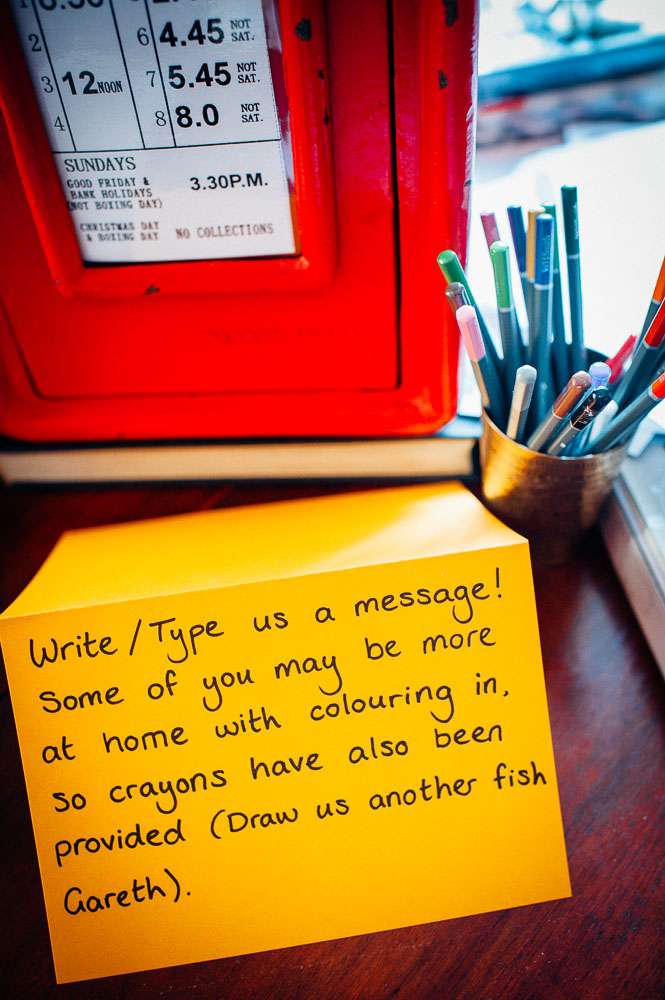 2
3 12NOON
4
6 4.45 NOT SAT.
7 5.45 NOT SAT.
8 8.0 NOT SAT.
SUNDAYS
GOOD FRIDAY &
BANK HOLIDAYS
(NOT BOXING DAY)
3.30P.M.
CHRISTMAS DAY
& BOXING DAY
NO COLLECTIONS
Write/Type us a message!
Some of you may be more
at home with colouring in,
so crayons have also been
provided (Draw us another fish
Gareth).